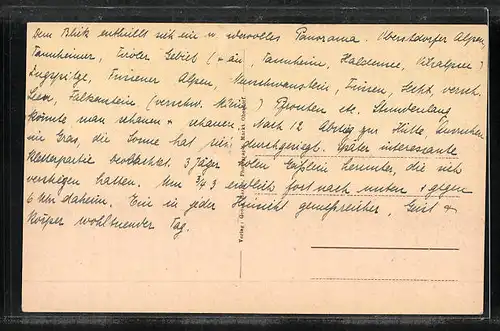 Dem Blick enthüllt sich ein u. wervolles Panorama. Oberstdorfer Alpen,
Tannheimer, Tiroler Gebiet ( Tannheim, Haldensee,
Zugspitze, Füssener Alpen, Neuschwanstein, Füssen, versch.
Seen, Falkenstein (verschw. ) Pfronten etc. Stundenlang
könnte man schauen + schauen. Nach 12 Abstieg zur Hütte. Ausruhen
im Gras, die Sonne hat sich durchgeriegt. Später interessante
Kletterpartie beobachtet. 3 Jäger holen Gemslein herunter, die sich
verstiegen hatten. Um 3/4 3 endlich fort nach unten + gegen
6 Uhr daheim. Ein in jeder Hinsicht genußreicher, Geist +
Körper wohltuender Tag.
Verlag: Markt Oberdorf